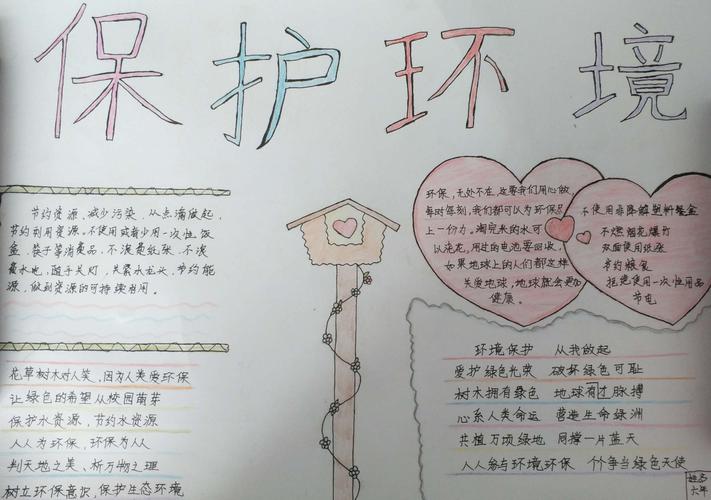 保护环境
节约资源、减少污染，从点滴做起，
节约利用资源。不使用或者少用一次性饭
盒、筷子等消费品，不浪费纸张，不浪
费水电，随手关灯，关紧水龙头，节约能
源，做到资源的可持续利用。
花草树木对人笑，因为人类爱环保
让绿色的希望从校园萌芽
保护水资源，节约水资源
人人为环保，环保为人人
判天地之美，析万物之理
树立环保意识，保护生态环境
环保，无处不在，这要我们用心做，
每时每刻，我们都可以为环保尽
上一份力。淘完米的水可
以浇花，用过的电池要回收，
如果地球上的人们都这样
关爱地球，地球就会更加
健康。
不使用非降解塑料餐盒
不燃烟花爆竹
双面使用纸张
节约粮食
拒绝使用一次性用品
节电
环境保护 从我做起
爱护绿色光荣 破坏绿色可耻
树木拥有绿色 地球有过脉搏
心系人类命运 营造生命绿洲
共植万顷绿地 同撑一片蓝天
人人参与环境环保 个个争当绿色天使
姓名